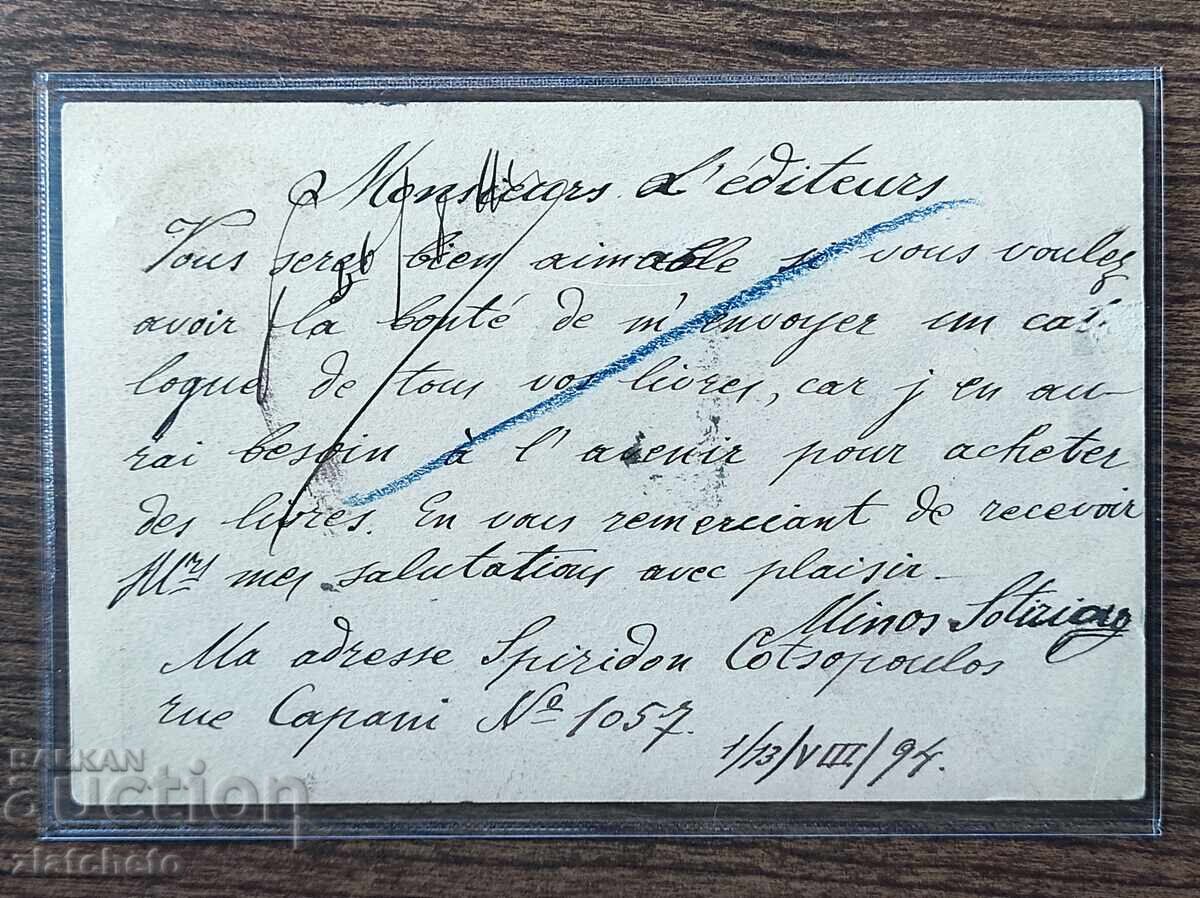 Monsieurs L'éditeurs
Vous serez bien aimable si vous voulez
avoir la bonté de m'envoyer un cata
logue de tous vos livres, car j'en au-
rai besoin à l'avenir pour acheter
des livres. En vous remerciant de recevoir
Mrs mes salutations avec plaisir_
Minos Sotiriou
Ma adresse Spiridon Cotsopoulos
rue Capani No 1057.
1/13/VIII/94.
BALKAN
auction
zlatcheto